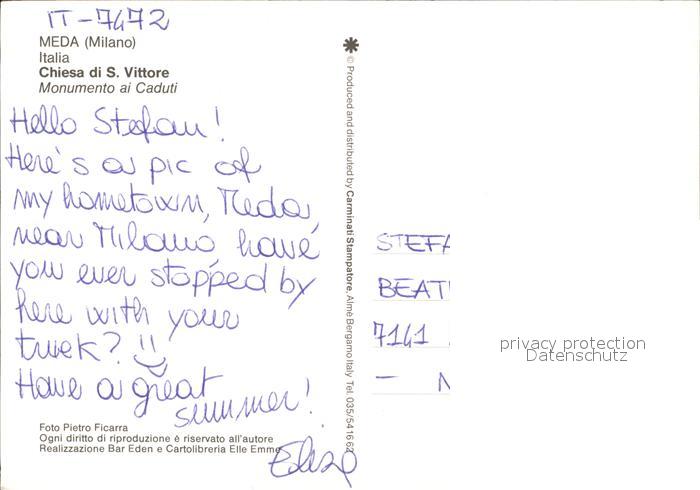 IT-7472
MEDA (Milano)
Italia
Chiesa di S. Vittore
Monumento ai Caduti
Hello Stefan!
Here's a pic of
my hometown, Meda,
near Milano, have
you ever stopped by
here with your
truck?
Have a great
summer!
Foto Pietro Ficarra
Ogni diritto di riproduzione è riservato all'autore
Realizzazione Bar Eden e Cartolibreria Elle Emme
© Produced and distributed by Carminati Stampatore, Almè Bergamo Italy, Tel. 035/541662
STEFA
BEAT
7141
privacy protection
Datenschutz